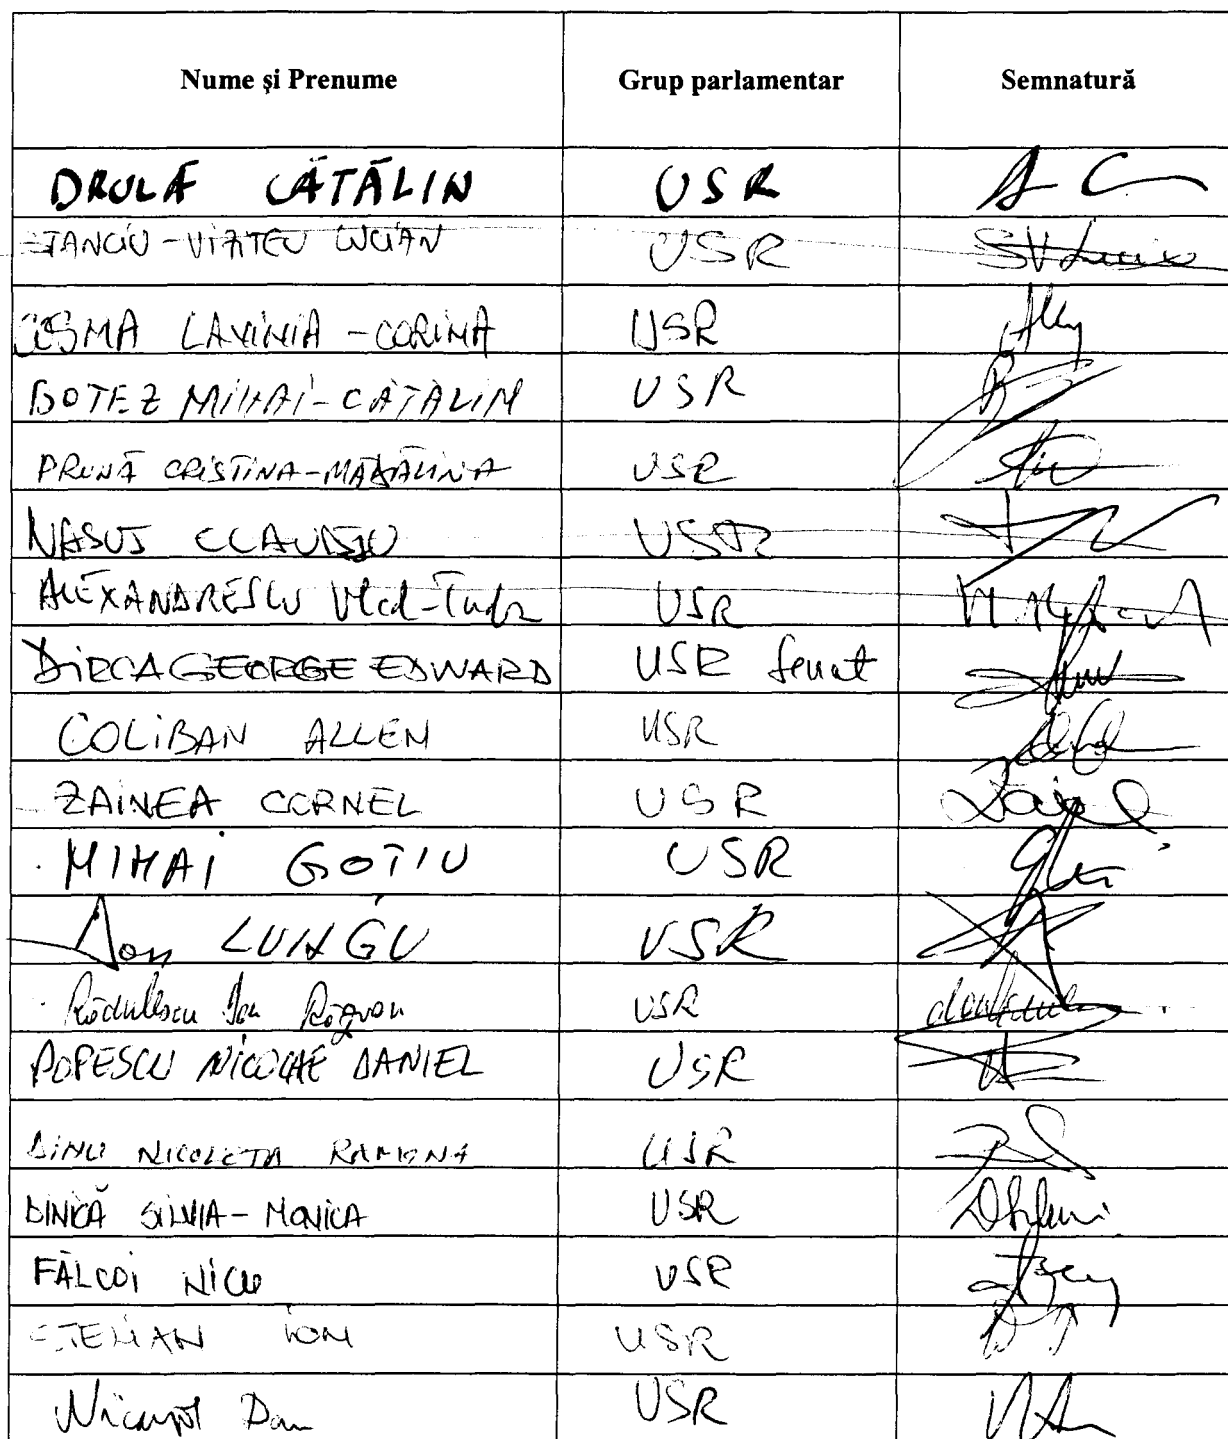 Nume și Prenume Grup parlamentar Semnatură
DRULĂ CĂTĂLIN USR
STANCIU-VIZITEU LUCIAN USR
COSMA LAVINIA-CORINA USR
BOTEZ MIHAI-CĂTĂLIN USR
PRUNĂ CRISTINA-MĂDĂLINA USR
NASUI CLAUDIU USR
ALEXANDRESCU Vlad-Tudor USR
DIRCA GEORGE EDWARD USR Senat
COLIBAN ALLEN USR
ZAINEA CORNEL USR
MIHAI GOȚIU USR
Ion LUNGU USR
Rădulescu Ion Răzvan USR
POPESCU NICOLAE DANIEL USR
DINU NICOLETA RAMONA USR
DINICĂ SILVIA-MONICA USR
FĂLCOI NICU USR
ȘTEFAN ION USR
Dan USR